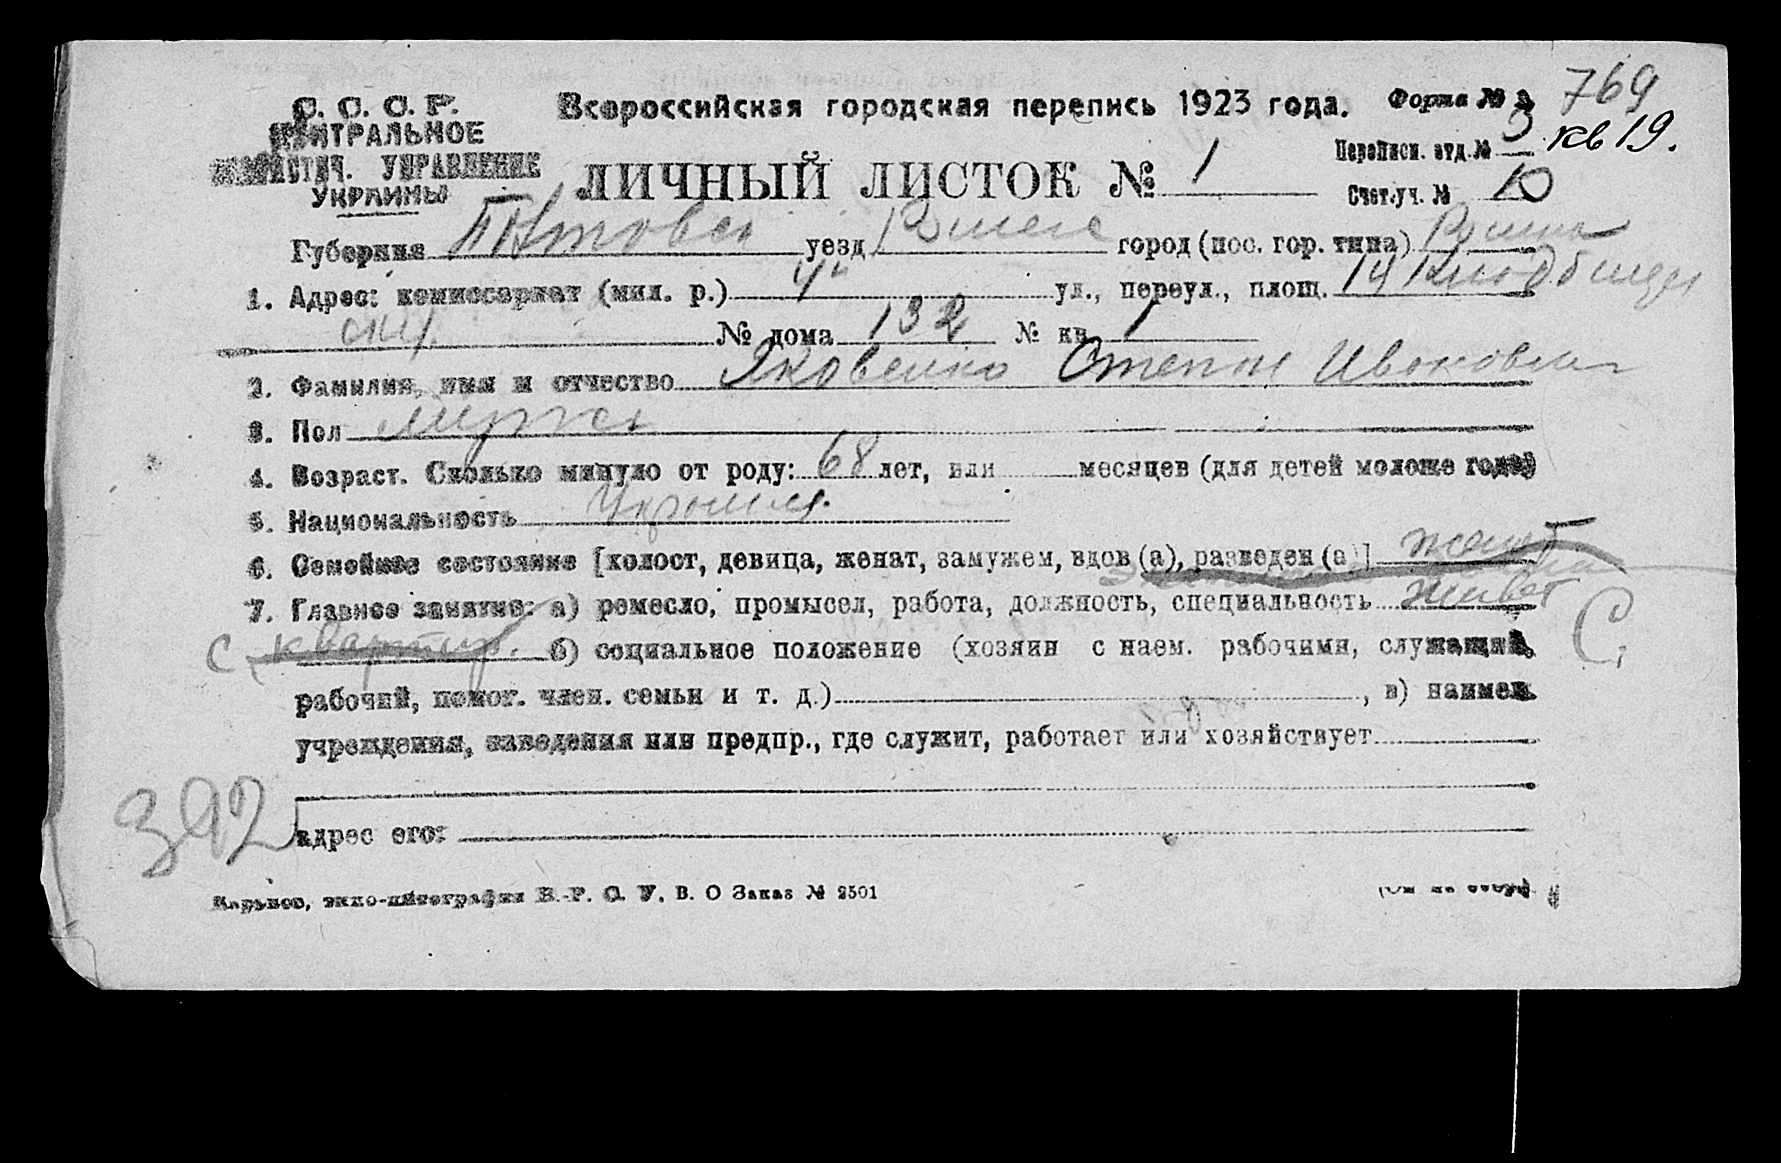 С. С. С. Р. Всероссийская городская перепись 1923 года. Форма № 3 769
ЦЕНТРАЛЬНОЕ
СТАТИСТИЧ. УПРАВЛЕНИЕ
УКРАИНЫ
ЛИЧНЫЙ ЛИСТОК № 1
Переписн. отд. № 3 кв 19.
Счетуч. № 10
Губерния Полтовск уезд Ромен город (пос. гор. типа) Ромны
1. Адрес: комиссариат (мил. р.) 4й ул., переул., площ. 14
№ дома 132 № кв. 1
2. Фамилия, имя и отчество Яковенко Степан Иванович
3. Пол мужск
4. Возраст. Сколько минуло от роду: 68 лет, или месяцев (для детей моложе года)
5. Национальность Украин.
6. Семейное состояние [холост, девица, женат, замужем, вдов (а), разведен (а)] женат
7. Главное занятие: а) ремесло, промысел, работа, должность, специальность живет
с квартир. б) социальное положение (хозяин с наем. рабочими, служащий, С,
рабочий, помог. член. семьи и т. д.) , в) наимен.
учреждения, заведения или предпр., где служит, работает или хозяйствует
392
адрес его:
Харьков, цинко-литография В.-Р. О. У. В. О Заказ № 2501